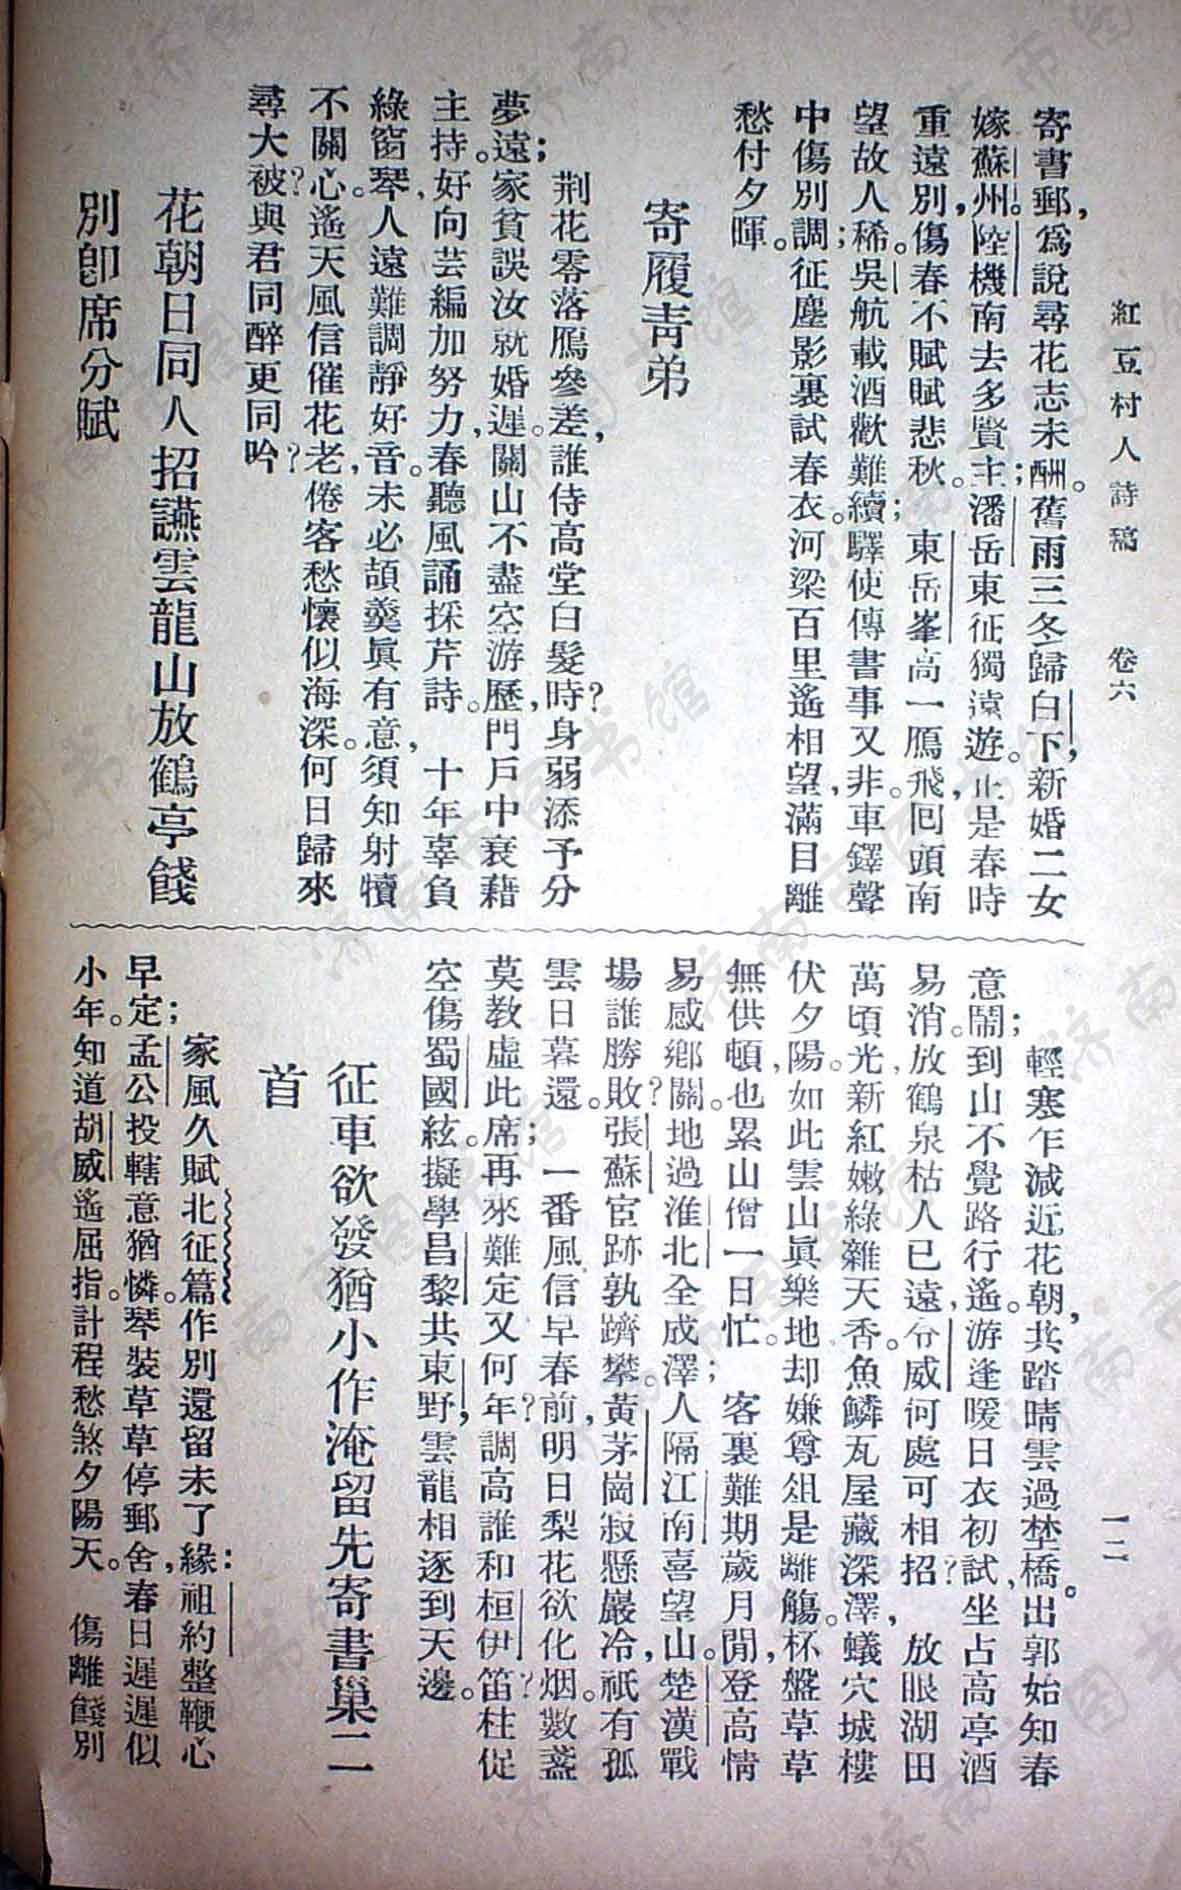 紅豆村人詩稿　卷六　一二
寄書郵，爲說尋花志未酬。舊雨三冬歸白下，新婚二女
嫁蘇州。陸機南去多賢主；潘岳東征獨遠遊。正是春時
重遠別，傷春不賦賦悲秋。　東岳峯高一鴈飛，囘頭南
望故人稀。吳航載酒歡難續；驛使傳書事又非。車鐸聲
中傷別調；征塵影裏試春衣。河梁百里遙相望，滿目離
愁付夕暉。
寄履青弟
荆花零落鴈參差，誰侍高堂白髮時？身弱添予分
夢遠；家貧誤汝就婚遲。關山不盡空游歷，門戶中衰藉
主持。好向芸編加努力，春聽風誦採芹詩。　十年辜負
綠窗琴，人遠難調靜好音。未必頡羹眞有意，須知射犢
不關心。遙天風信催花老，倦客愁懷似海深。何日歸來
尋大被？與君同醉更同吟？
花朝日同人招讌雲龍山放鶴亭餞
別卽席分賦
輕寒乍減近花朝，共踏晴雲過埜橋。出郭始知春
意鬧；到山不覺路行遙。游逢暖日衣初試，坐占高亭酒
易消。放鶴泉枯人已遠，令威何處可相招？　放眼湖田
萬頃光，新紅嫩綠雜天香。魚鱗瓦屋藏深澤，蟻穴城樓
伏夕陽。如此雲山眞樂地，却嫌尊俎是離觴。杯盤草草
無供頓，也累山僧一日忙。　客裏難期歲月閒，登高情
易感鄉關？地過淮北全成澤；人隔江南喜望山。楚漢戰
場誰勝敗？張蘇宦跡孰躋攀。黃茅崗寂懸巖冷，祇有孤
雲日暮還。　一番風信早春前，明日梨花欲化烟。數盞
莫教虛此席；再來難定又何年？調高誰和桓伊笛？柱促
空傷蜀國絃。擬學昌黎共東野，雲龍相逐到天邊。
征車欲發猶小作淹留先寄書巢二
首
家風久賦北征篇，作別還留未了緣：祖約整鞭心
早定；孟公投轄意猶憐。琴裝草草停郵舍，春日遲遲似
小年。知道胡威遙屈指，計程愁煞夕陽天。　傷離餞別